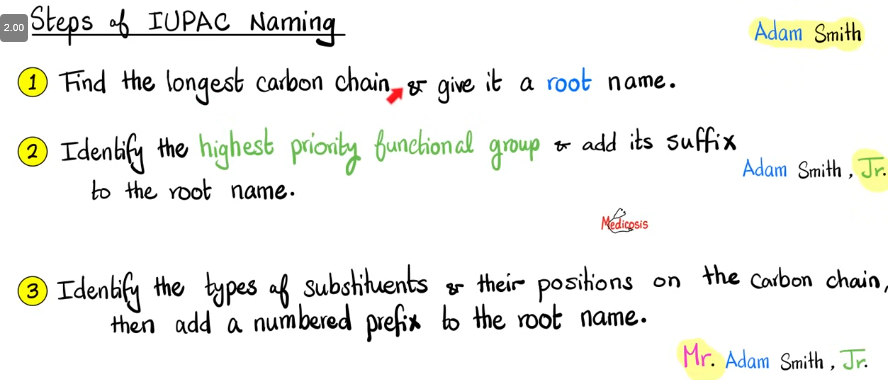 2.00
Steps of IUPAC Naming
Adam Smith
1 Find the longest carbon chain & give it a root name.
2 Identify the highest priority functional group & add its suffix
to the root name.
Adam Smith, Jr.
Medicosis
3 Identify the types of substituents & their positions on the carbon chain,
then add a numbered prefix to the root name.
Mr. Adam Smith, Jr.